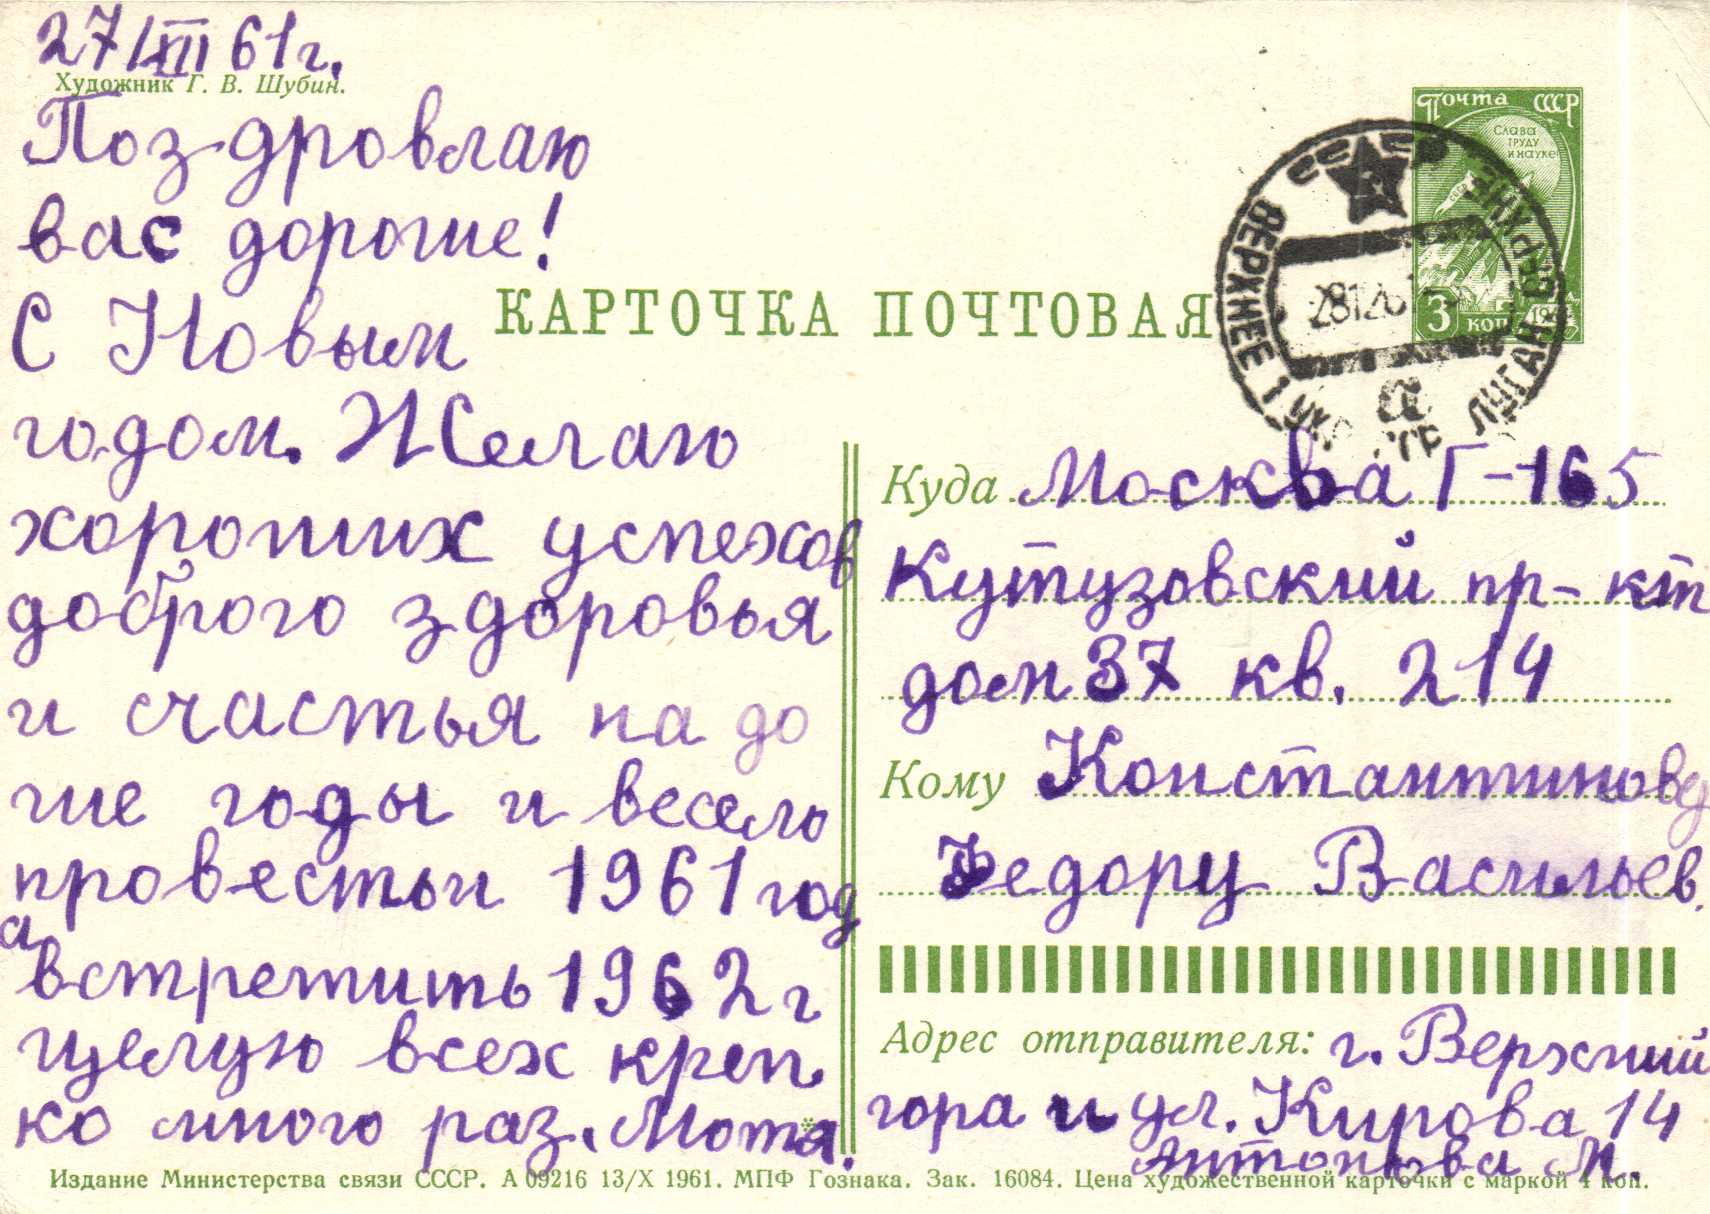 27/XII 61 г.
Художник Г. В. Шубин.
Поздровлаю
вас дорогие!
С Новым
годом. Желаю
хороших успехов
доброго здоровья
и счастья на до
гие годы и весело
провестьи 1961 год
а встретить 1962 г
целую всех креп
ко много раз. Мотя.
Почта СССР
Слава
труду
и науке
3 коп
КАРТОЧКА ПОЧТОВАЯ
ВЕРХНЕЕ
ЛУГАН
а
Куда Москва Г-165
Кутузовский пр-кт
дом 37 кв. 214
Кому Константинову
Федору Васильев.
Адрес отправителя: г. Верхний
гора и ул. Кирова 14
Антонова М.
Издание Министерства связи СССР. А 09216 13/X 1961. МПФ Гознака. Зак. 16084. Цена художественной карточки с маркой 4 коп.